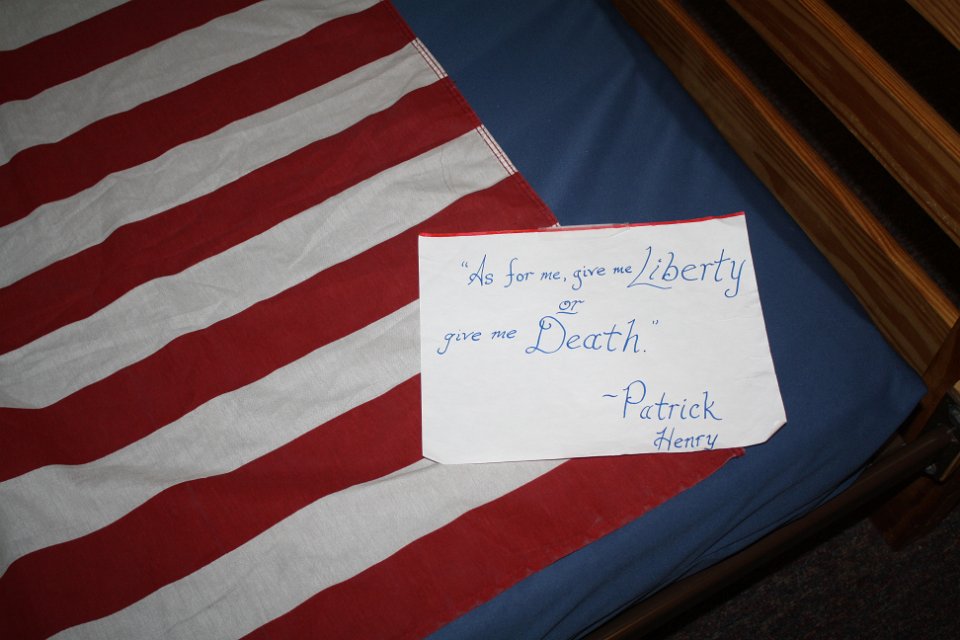 "As for me, give me Liberty
or
give me Death."
~Patrick
Henry